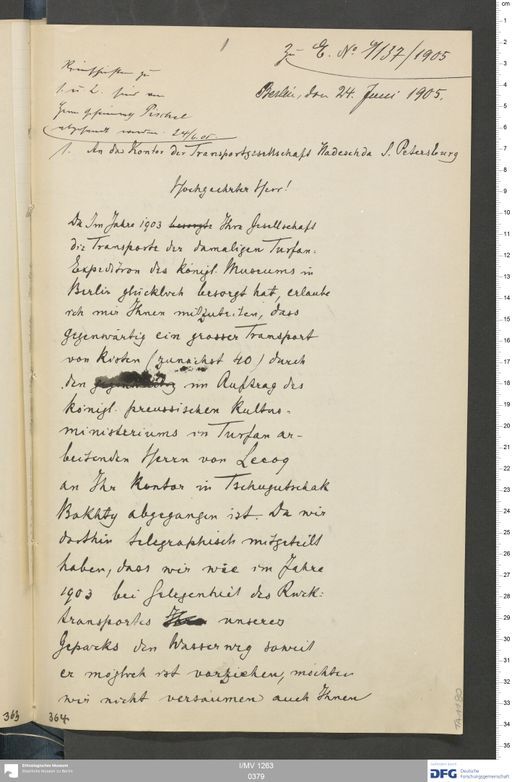 zu E. No 1137/1905
Reinschriften zu
1. u 2. sind an
Herrn Geheimrat Pischel
abgesandt worden. 24/6.05
Berlin, den 24. Juni 1905.
1. An das Kontor der Transportgesellschaft Nadeschda S. Petersburg
Hochgeehrter Herr!
Da Im Jahre 1903 besorgte Ihre Gesellschaft
die Transporte der damaligen Turfan-
Expedition des Königl. Museums in
Berlin glücklich besorgt hat, erlaube
ich mir Ihnen mitzuteilen, dass
gegenwärtig ein grosser Transport
von Kisten (zunächst 40) durch
den im Auftrag des
Königl. preussischen Kultus-
ministeriums in Turfan ar-
beitenden Herrn von Lecoq
an Ihr Kontor in Tschugutschak
Bakhty abgegangen ist. Da wir
dorthin telegraphisch mitgeteilt
haben, dass wir wie im Jahre
1903 bei Gelegenheit des Rück-
transportes unseres
Gepäcks den Wasserweg soweit
er möglich ist vorziehen, möchten
wir nicht versäumen auch Ihnen
363
364
TA 1190
Ethnologisches Museum
Staatliche Museen zu Berlin
I/MV 1263
0379
DFG Deutsche
Forschungsgemeinschaft
cm
1
2
3
4
5
6
7
8
9
10
11
12
13
14
15
16
17
18
19
20
21
22
23
24
25
26
27
28
29
30
31
32
33
34
35